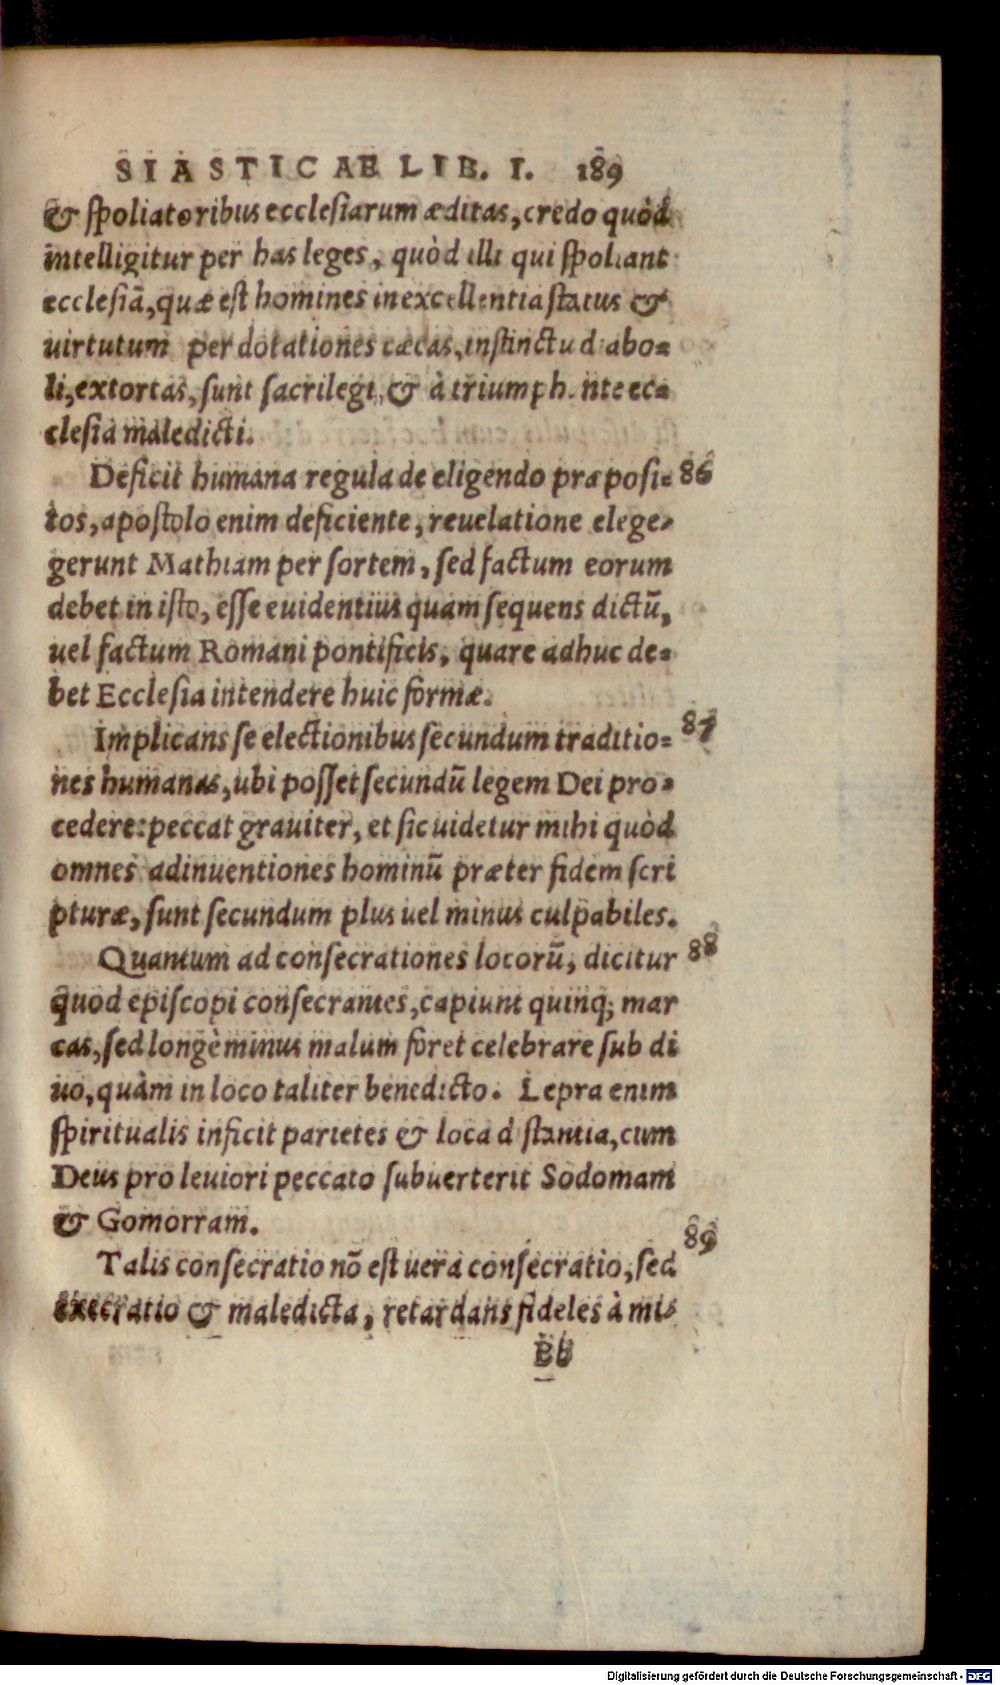 SIASTICAE LIB. I. 189
& spoliatoribus ecclesiarum æditas, credo quòd
intelligitur per has leges, quòd illi qui spoliant
ecclesiã, quæ est homines in excellentia status &
uirtutum per dotationes cæcas, instinctu diabo=
li, extortas, sunt sacrilegi, & à triumphante ec=
clesia maledicti.
Deficit humana regula de eligendo præposi= 86
tos, apostolo enim deficiente, reuelatione elege=
gerunt Mathiam per sortem, sed factum eorum
debet in isto, esse euidentius quam sequens dictũ,
uel factum Romani pontificis, quare adhuc de=
bet Ecclesia intendere huic formæ.
Implicans se electionibus secundum traditio= 87
nes humanas, ubi posset secundũ legem Dei pro=
cedere: peccat grauiter, et sic uidetur mihi quòd
omnes adinuentiones hominũ præter fidem scri
pturæ, sunt secundum plus uel minus culpabiles.
Quantum ad consecrationes locorũ, dicitur 88
quod episcopi consecrantes, capiunt quinq; mar
cas, sed longè minus malum foret celebrare sub di
uo, quàm in loco taliter benedicto. Lepra enim
spiritualis inficit parietes & loca distantia, cum
Deus pro leuiori peccato subuerterit Sodomam
& Gomorram.
Talis consecratio nõ est uera consecratio, sed 89
execratio & maledicta, retardans fideles à mi=
Bb
Digitalisierung gefördert durch die Deutsche Forschungsgemeinschaft - DFG